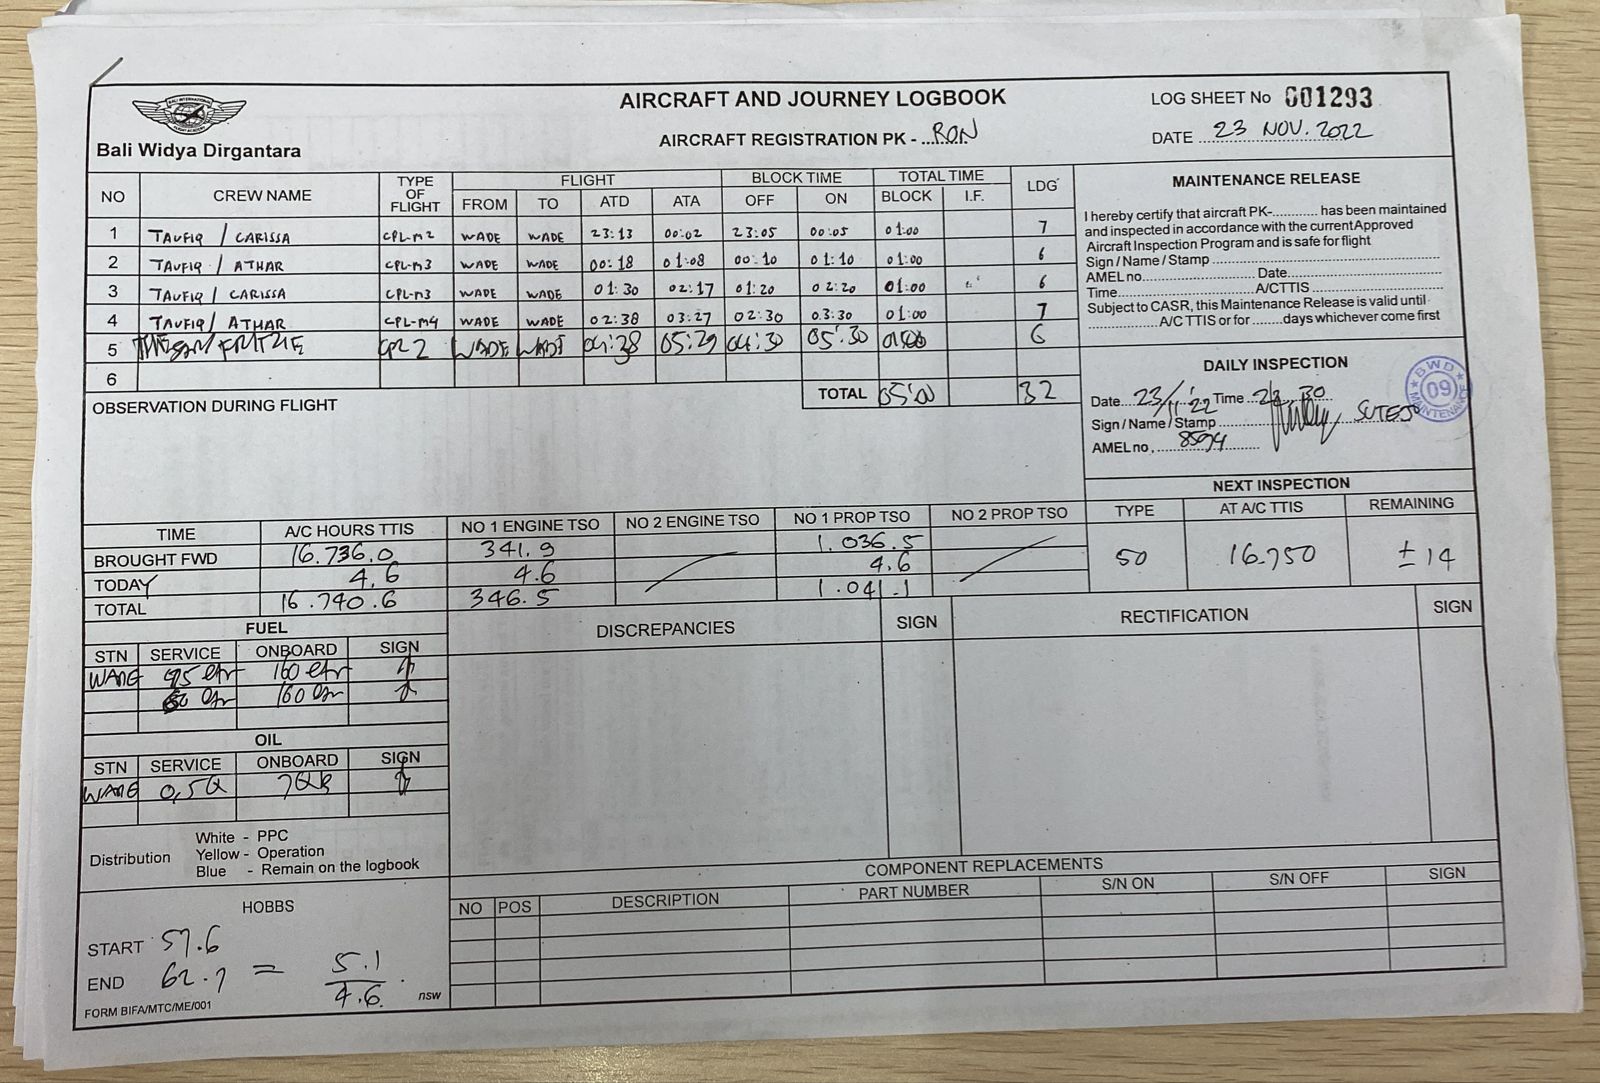 AIRCRAFT AND JOURNEY LOGBOOK
LOG SHEET No 001293
Bali Widya Dirgantara
AIRCRAFT REGISTRATION PK - RON
DATE 23 NOV. 2022
NO CREW NAME TYPE OF FLIGHT FLIGHT BLOCK TIME TOTAL TIME LDG
FROM TO ATD ATA OFF ON BLOCK I.F.
1 TAUFIQ / CARISSA CPL-M2 WADE WADE 23:13 00:02 23:05 00:05 01:00 7
2 TAUFIQ / ATHAR CPL-M3 WADE WADE 00:18 01:08 00:10 01:10 01:00 6
3 TAUFIQ / CARISSA CPL-M3 WADE WADE 01:30 02:17 01:20 02:20 01:00 6
4 TAUFIQ / ATHAR CPL-M4 WADE WADE 02:38 03:27 02:30 03:30 01:00 7
5 CPL 2 WADE WADE 04:38 05:29 04:30 05:30 6
6
TOTAL 05:00 32
MAINTENANCE RELEASE
I hereby certify that aircraft PK-............ has been maintained
and inspected in accordance with the current Approved
Aircraft Inspection Program and is safe for flight
Sign / Name / Stamp
AMEL no. Date
Time A/C TTIS
Subject to CASR, this Maintenance Release is valid until
A/C TTIS or for ........ days whichever come first
DAILY INSPECTION
Date 23/11'22 Time 30
Sign / Name / Stamp SUTEJO
AMEL no. 8594
BWD 09 MAINTENANCE
OBSERVATION DURING FLIGHT
NEXT INSPECTION
TYPE AT A/C TTIS REMAINING
50 16.750 ± 14
TIME A/C HOURS TTIS NO 1 ENGINE TSO NO 2 ENGINE TSO NO 1 PROP TSO NO 2 PROP TSO
BROUGHT FWD 16.736.0 341.9 1.036.5
TODAY 4.6 4.6 4.6
TOTAL 16.740.6 346.5 1.041.1
FUEL
STN SERVICE ONBOARD SIGN
WADE 95 ltr 160 ltr
160 ltr
OIL
STN SERVICE ONBOARD SIGN
WADE 0,5Q
DISCREPANCIES SIGN RECTIFICATION SIGN
Distribution White - PPC
Yellow - Operation
Blue - Remain on the logbook
COMPONENT REPLACEMENTS
NO POS DESCRIPTION PART NUMBER S/N ON S/N OFF SIGN
HOBBS
START 57.6
END 62.7 = 5.1
4.6
FORM BIFA/MTC/ME/001 nsw